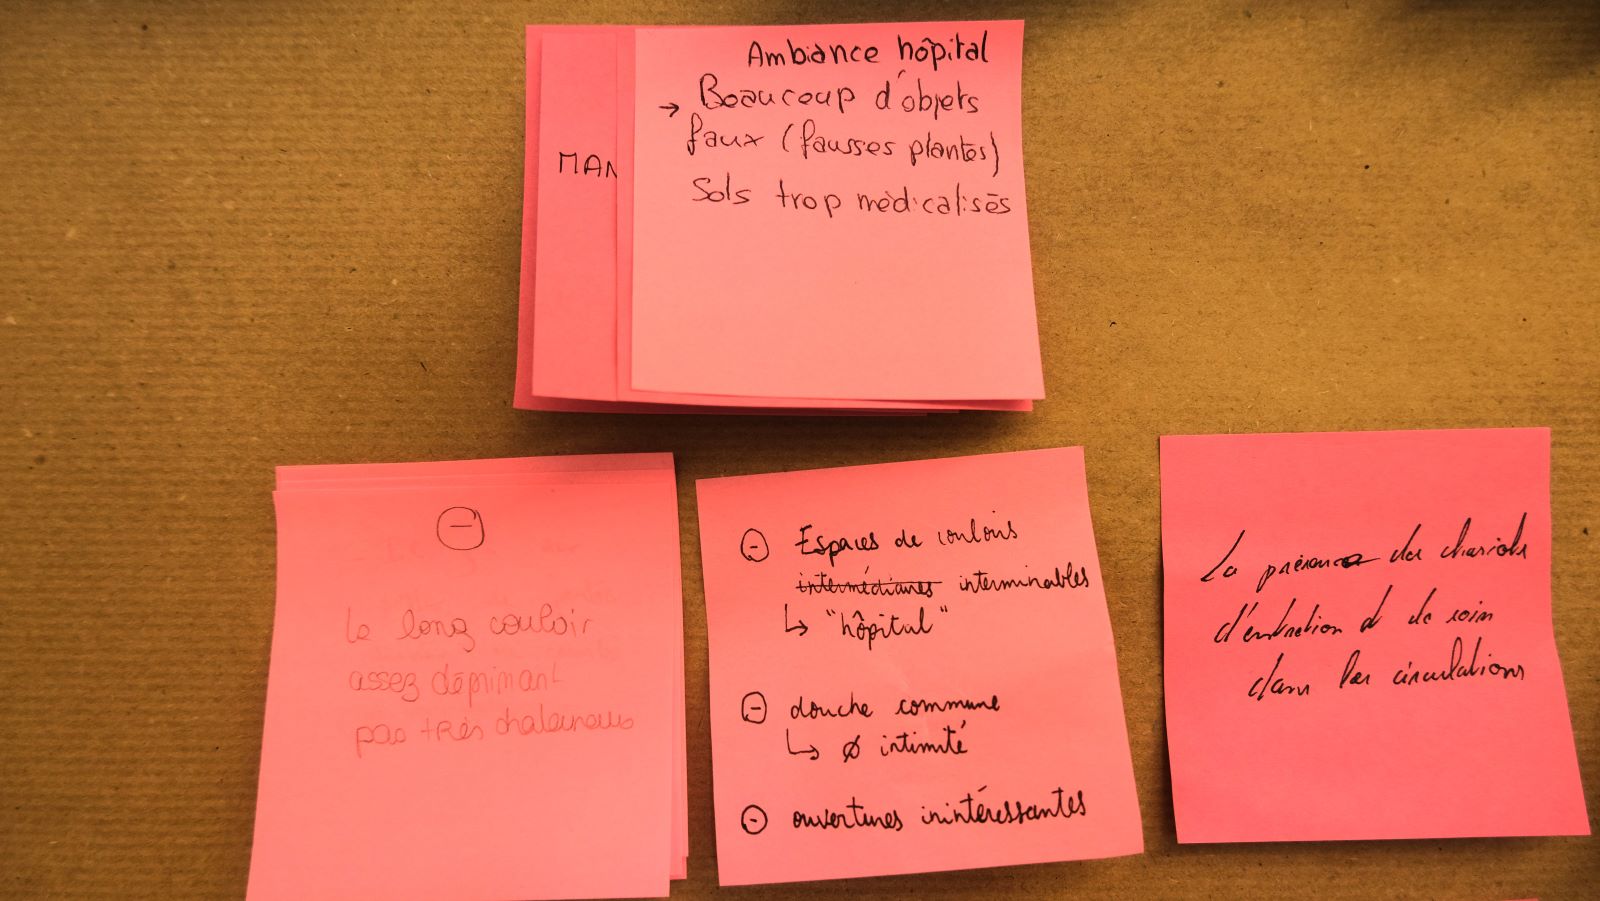 Ambiance hôpital
→ Beaucoup d'objets
faux (fausses plantes)
Sols trop médicalisés
MAN
⊖
Le long couloir
assez déprimant
pas très chaleureux
⊖ Espaces de couloirs
intermédiaires interminables
↳ "hôpital"
⊖ douche commune
↳ ∅ intimité
⊖ ouvertures inintéressantes
La présence des chariots
d'entretien et de soin
dans les circulations